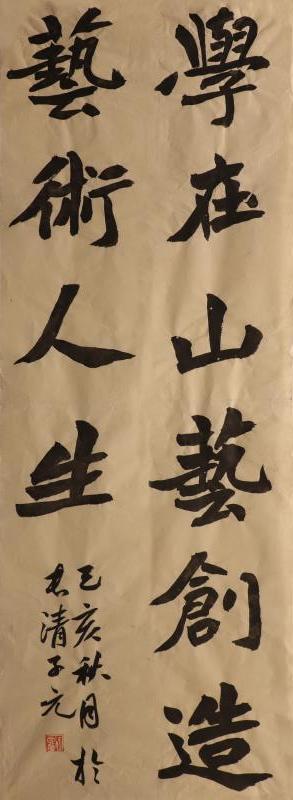 學在山藝創造
藝術人生
己亥秋月於
清子元